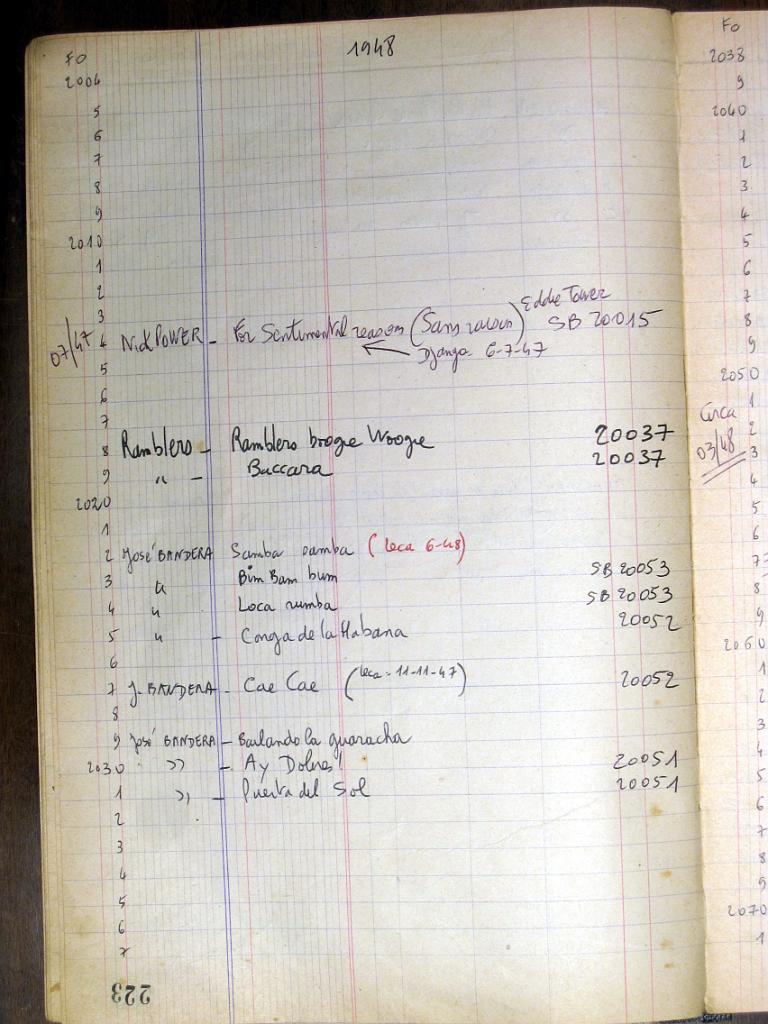 FO
1948
2004
5
6
7
8
9
2010
1
2
3
Eddie Tower
07/47 4 Nick POWER - For Sentimental reasons (Sans raison) SB 20015
Django 6-7-47
5
6
7
8 Ramblers - Ramblers boogie Woogie 20037
9 " - Baccara 20037
2020
1
2 José BANDERA Samba samba (leca 6-48)
3 " Bim Bam bum SB 20053
4 " Loca rumba SB 20053
5 " - Conga de la Habana 20052
6
7 J. BANDERA - Cae Cae (leca - 11-11-47) 20052
8
9 José BANDERA - Bailando la guaracha
2030 " - Ay Dolores! 20051
1 " - Puerta del Sol 20051
2
3
4
5
6
7
223
FO
2038
9
2040
1
2
3
4
5
6
7
8
9
2050
Circa 1
03/48 2
3
4
5
6
7
8
9
2060
1
2
3
4
5
6
7
8
9
2070
1